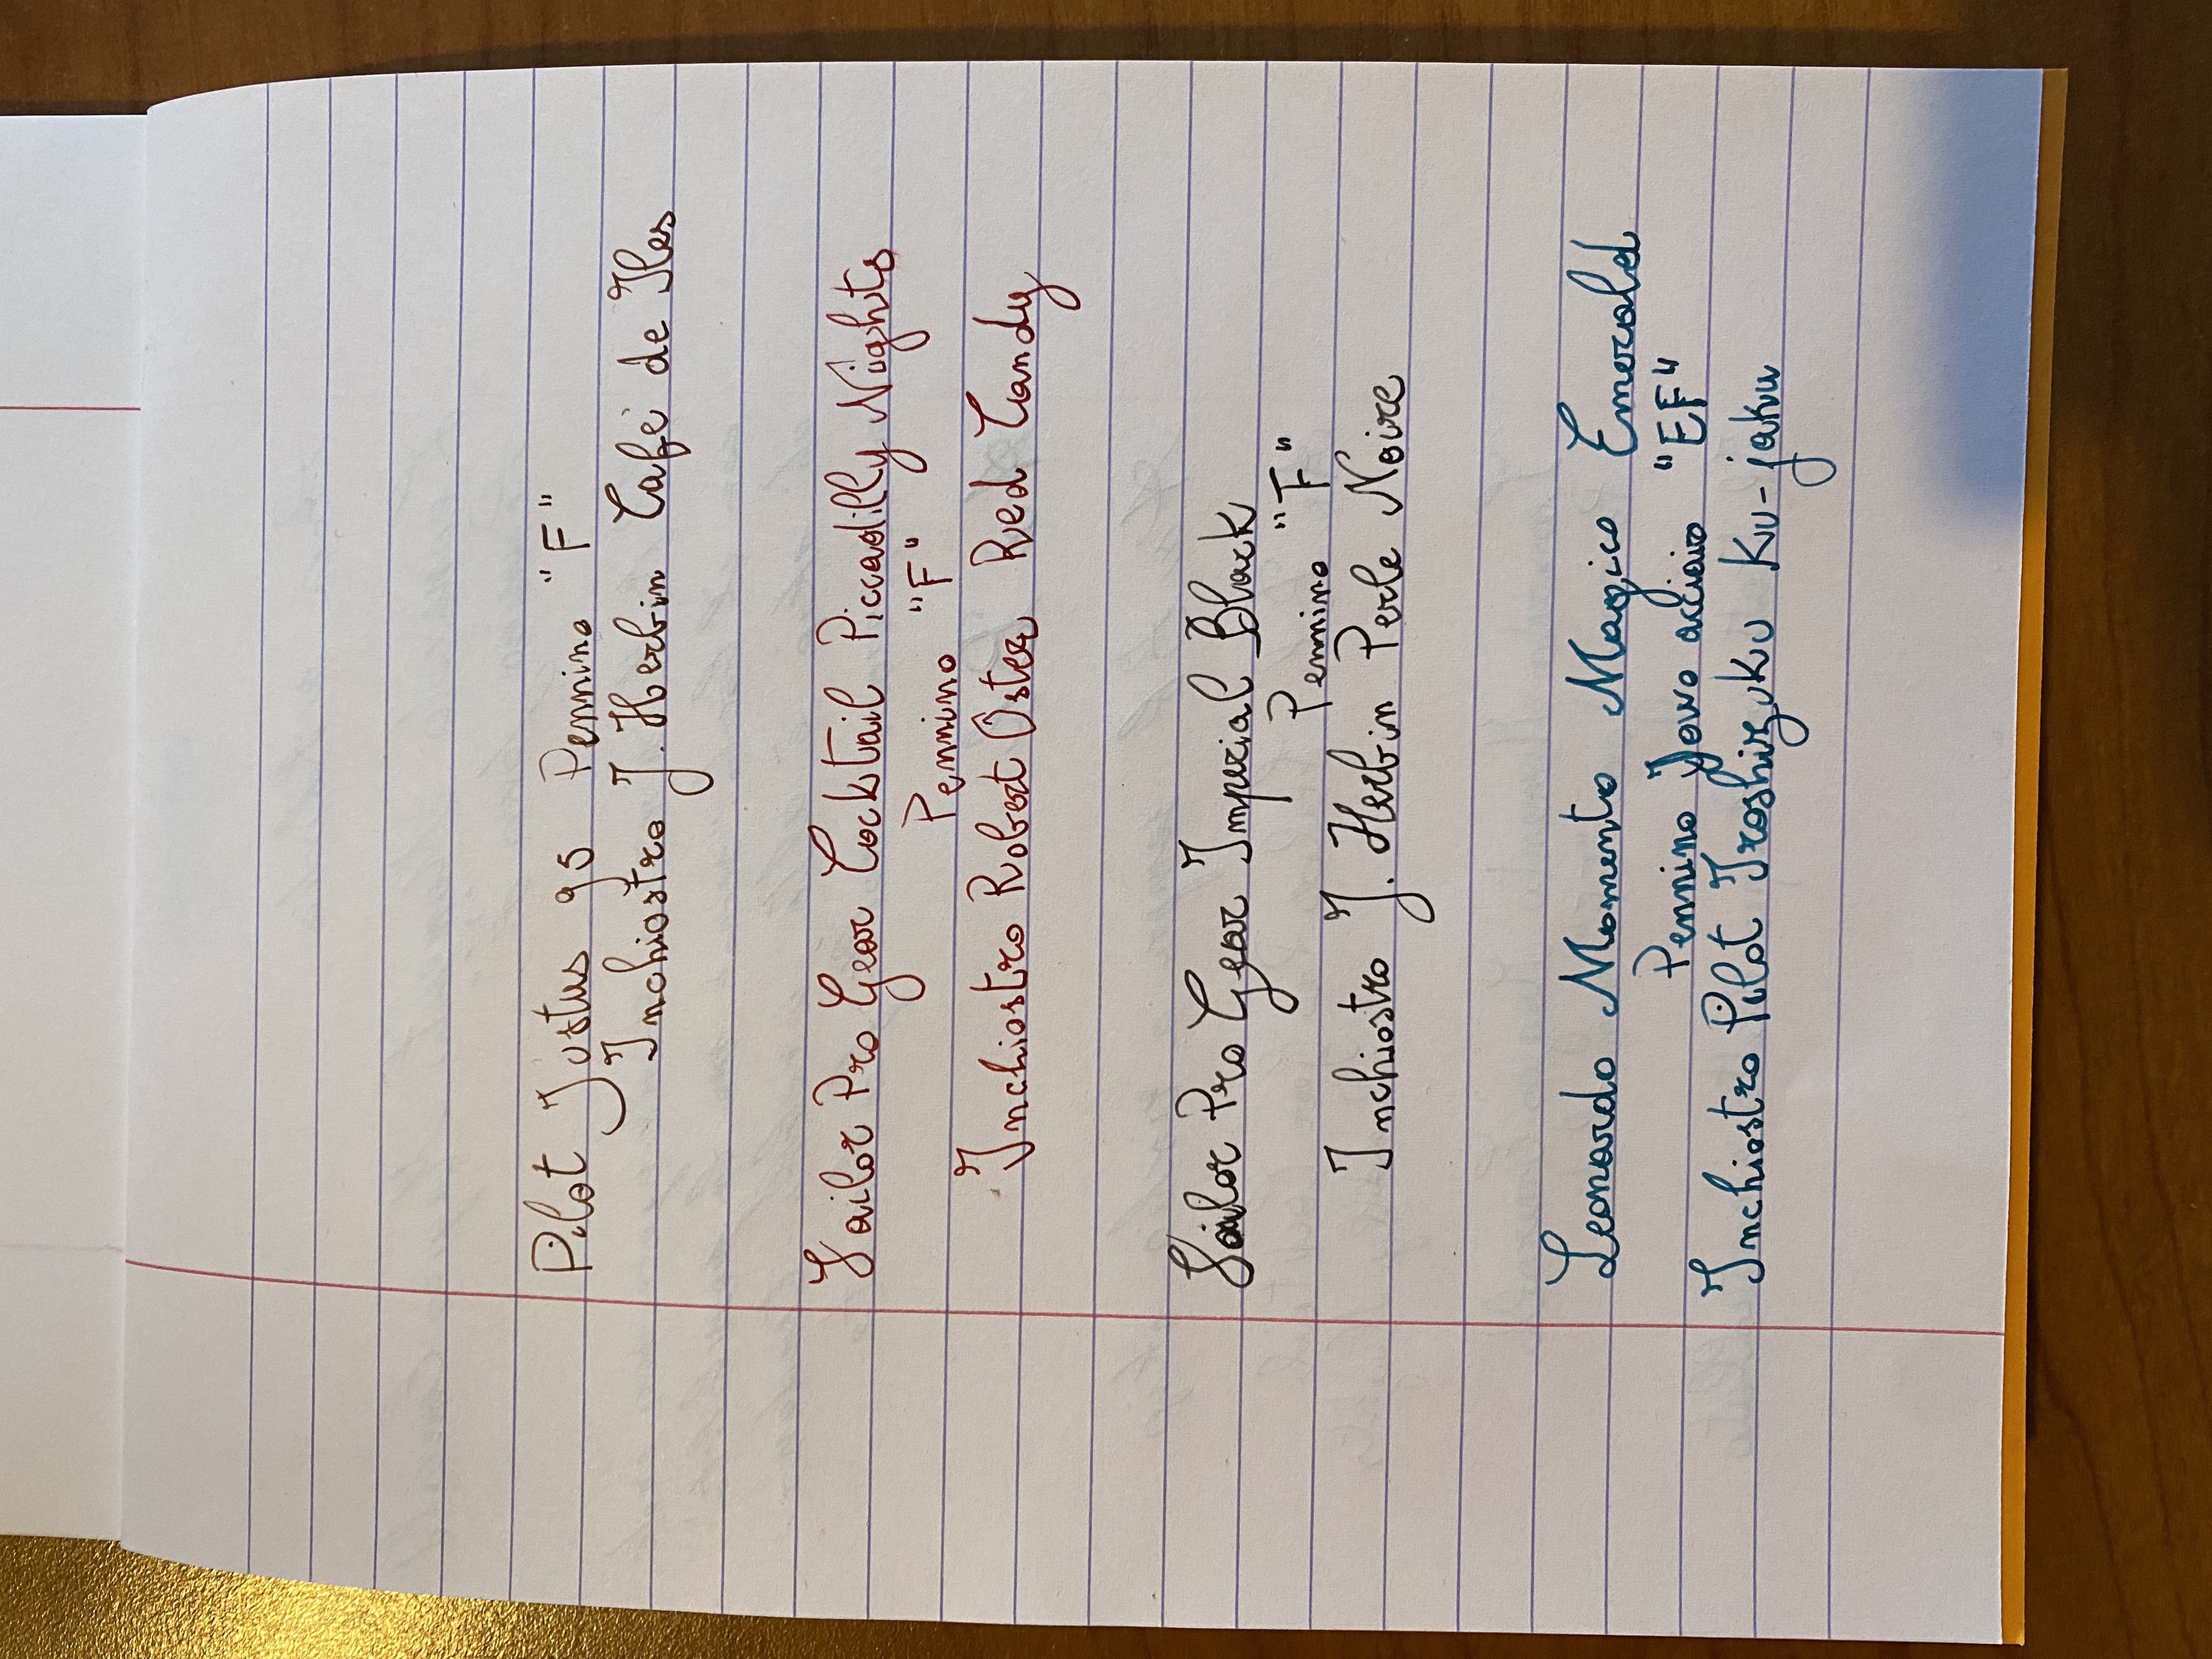 Pilot Justus 95 Pennino "F"
Inchiostro J. Herbin Café de Iles
Sailor Pro Gear Cocktail Piccadilly Nights
Pennino "F"
Inchiostro Robert Oster Red Candy
Sailor Pro Gear Imperial Black
Pennino "F"
Inchiostro J. Herbin Perle Noire
Leonardo Momento Magico Emerald
Pennino Jowo acciaio "EF"
Inchiostro Pilot Iroshizuku Ku-jaku